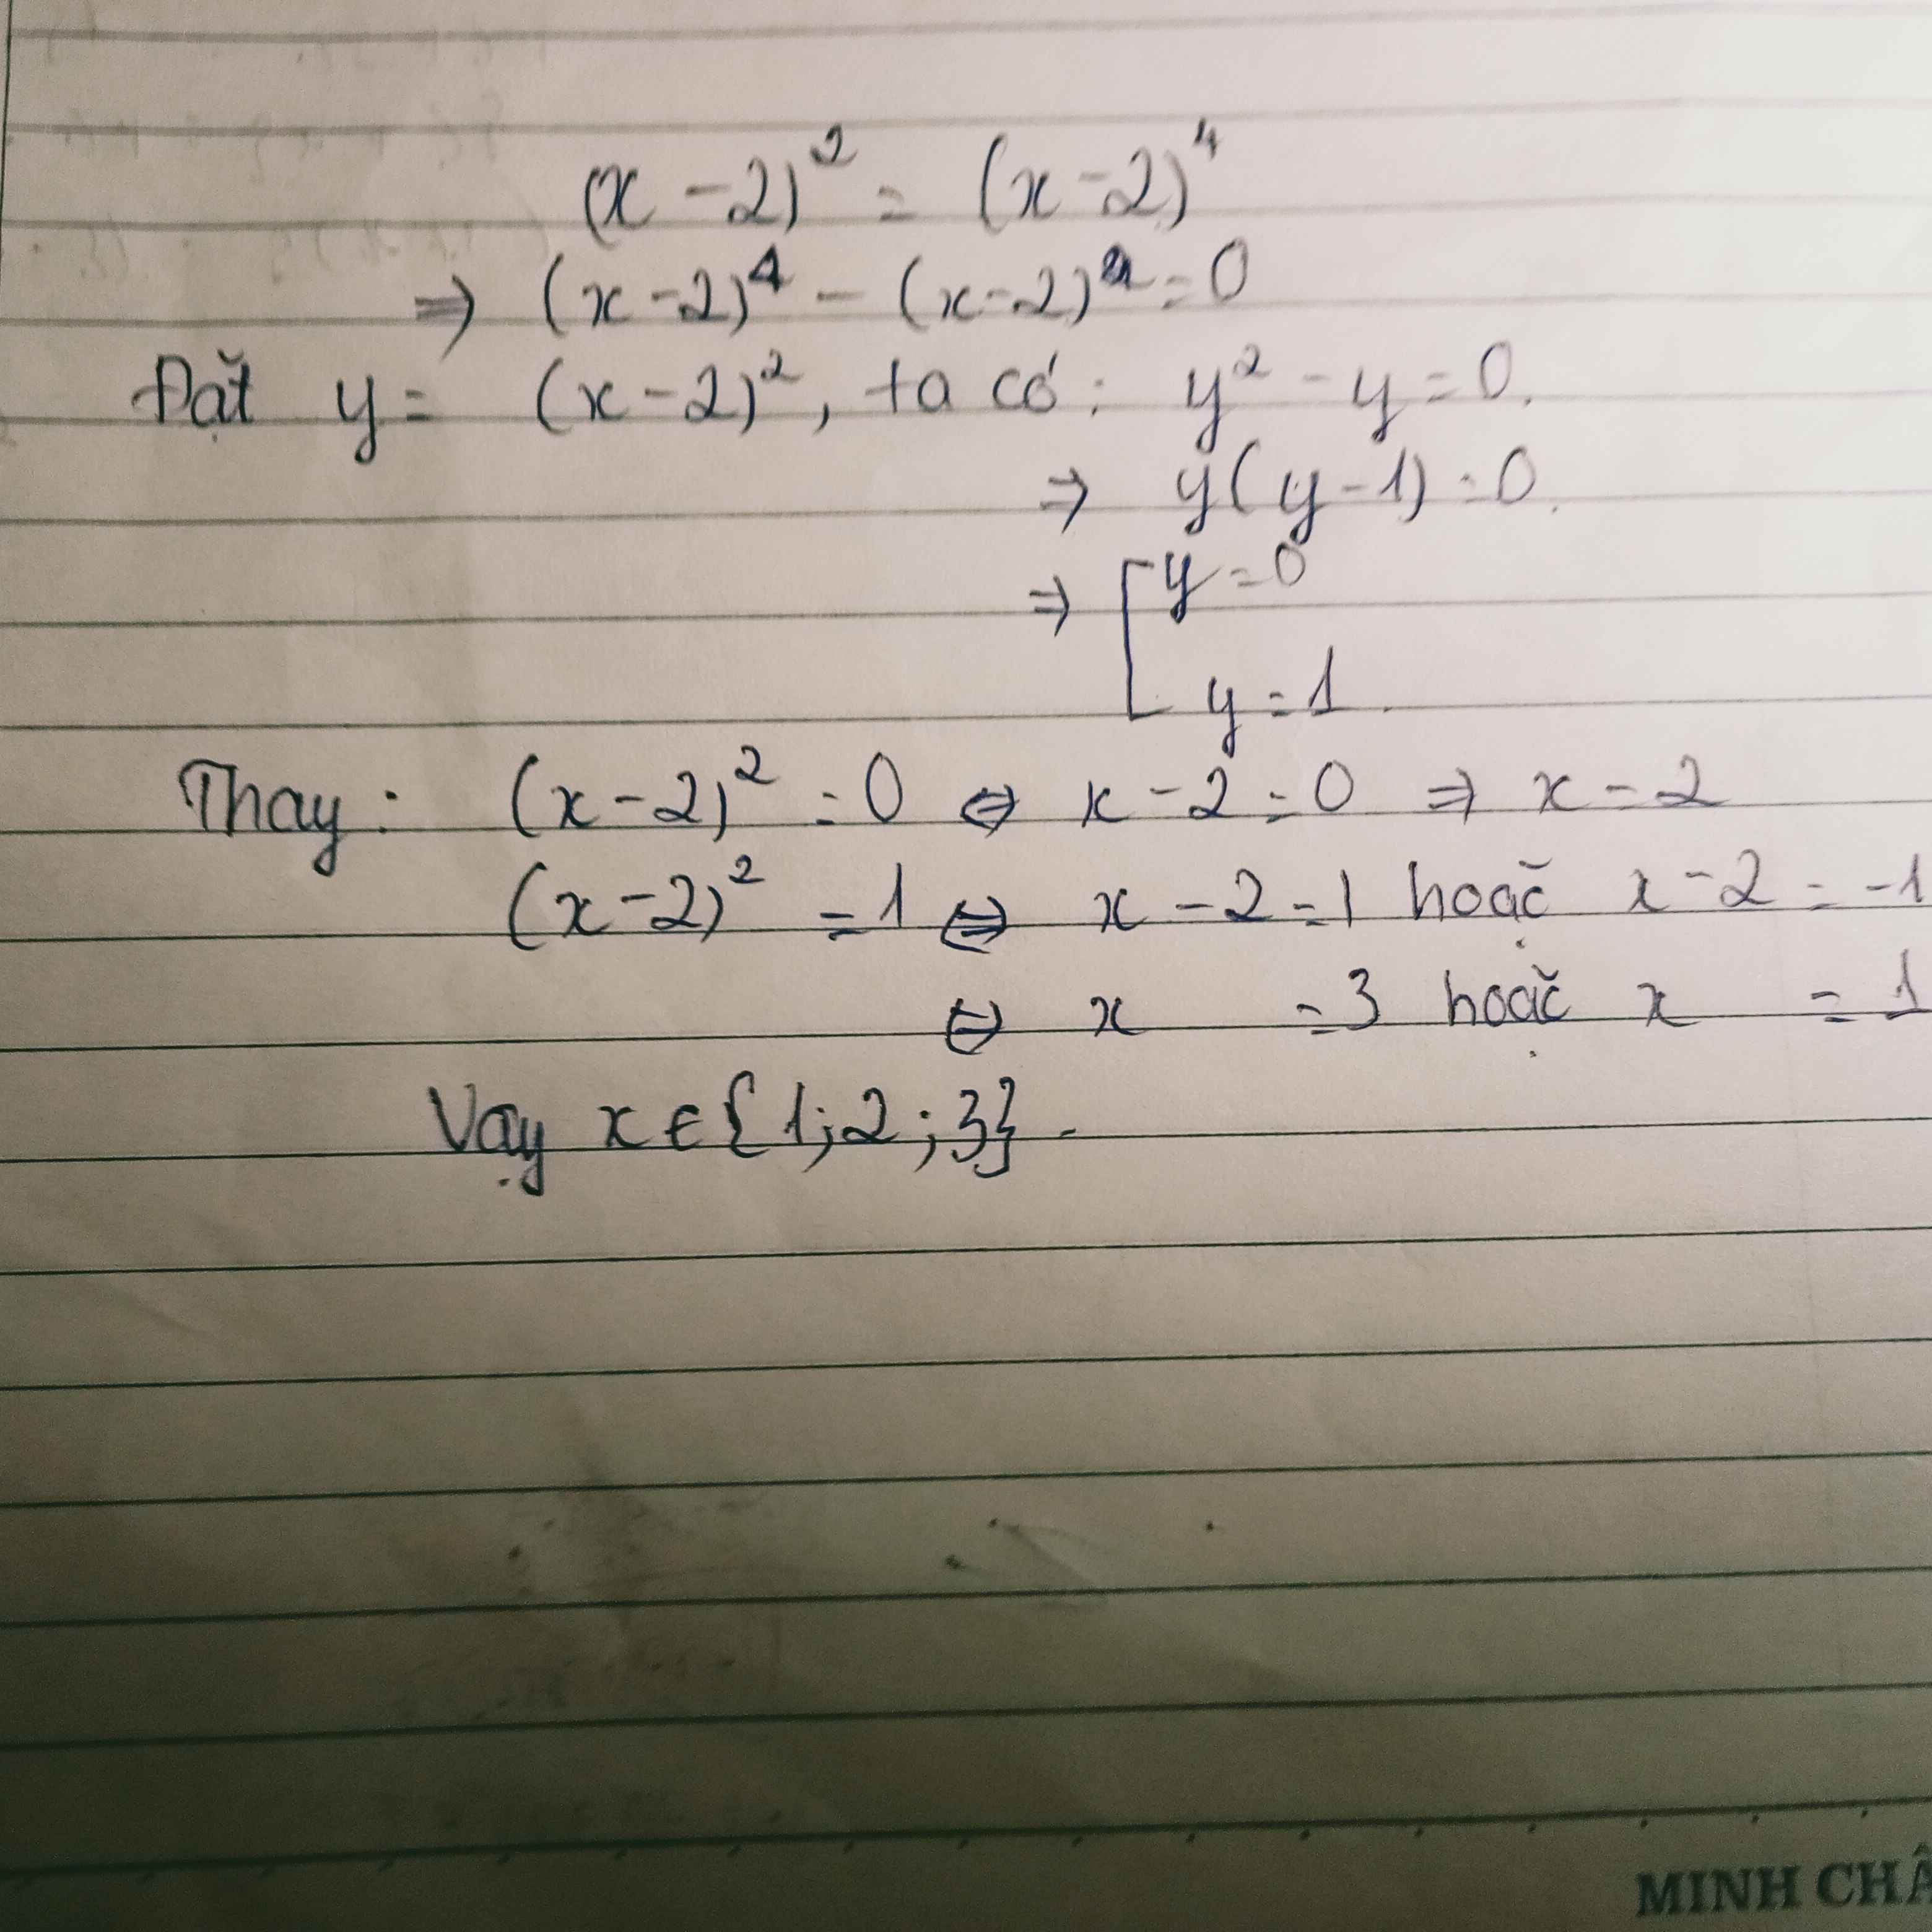 (x - 2)² = (x - 2)⁴
⇒ (x - 2)⁴ - (x - 2)² = 0
Đặt y = (x - 2)², ta có: y² - y = 0.
⇒ y(y - 1) = 0.
⇒ [ y = 0
y = 1.
Thay: (x - 2)² = 0 ⇔ x - 2 = 0 ⇒ x = 2
(x - 2)² = 1 ⇔ x - 2 = 1 hoặc x - 2 = -1
⇔ x = 3 hoặc x = 1
Vậy x ∈ {1; 2; 3}.
MINH CHÂ